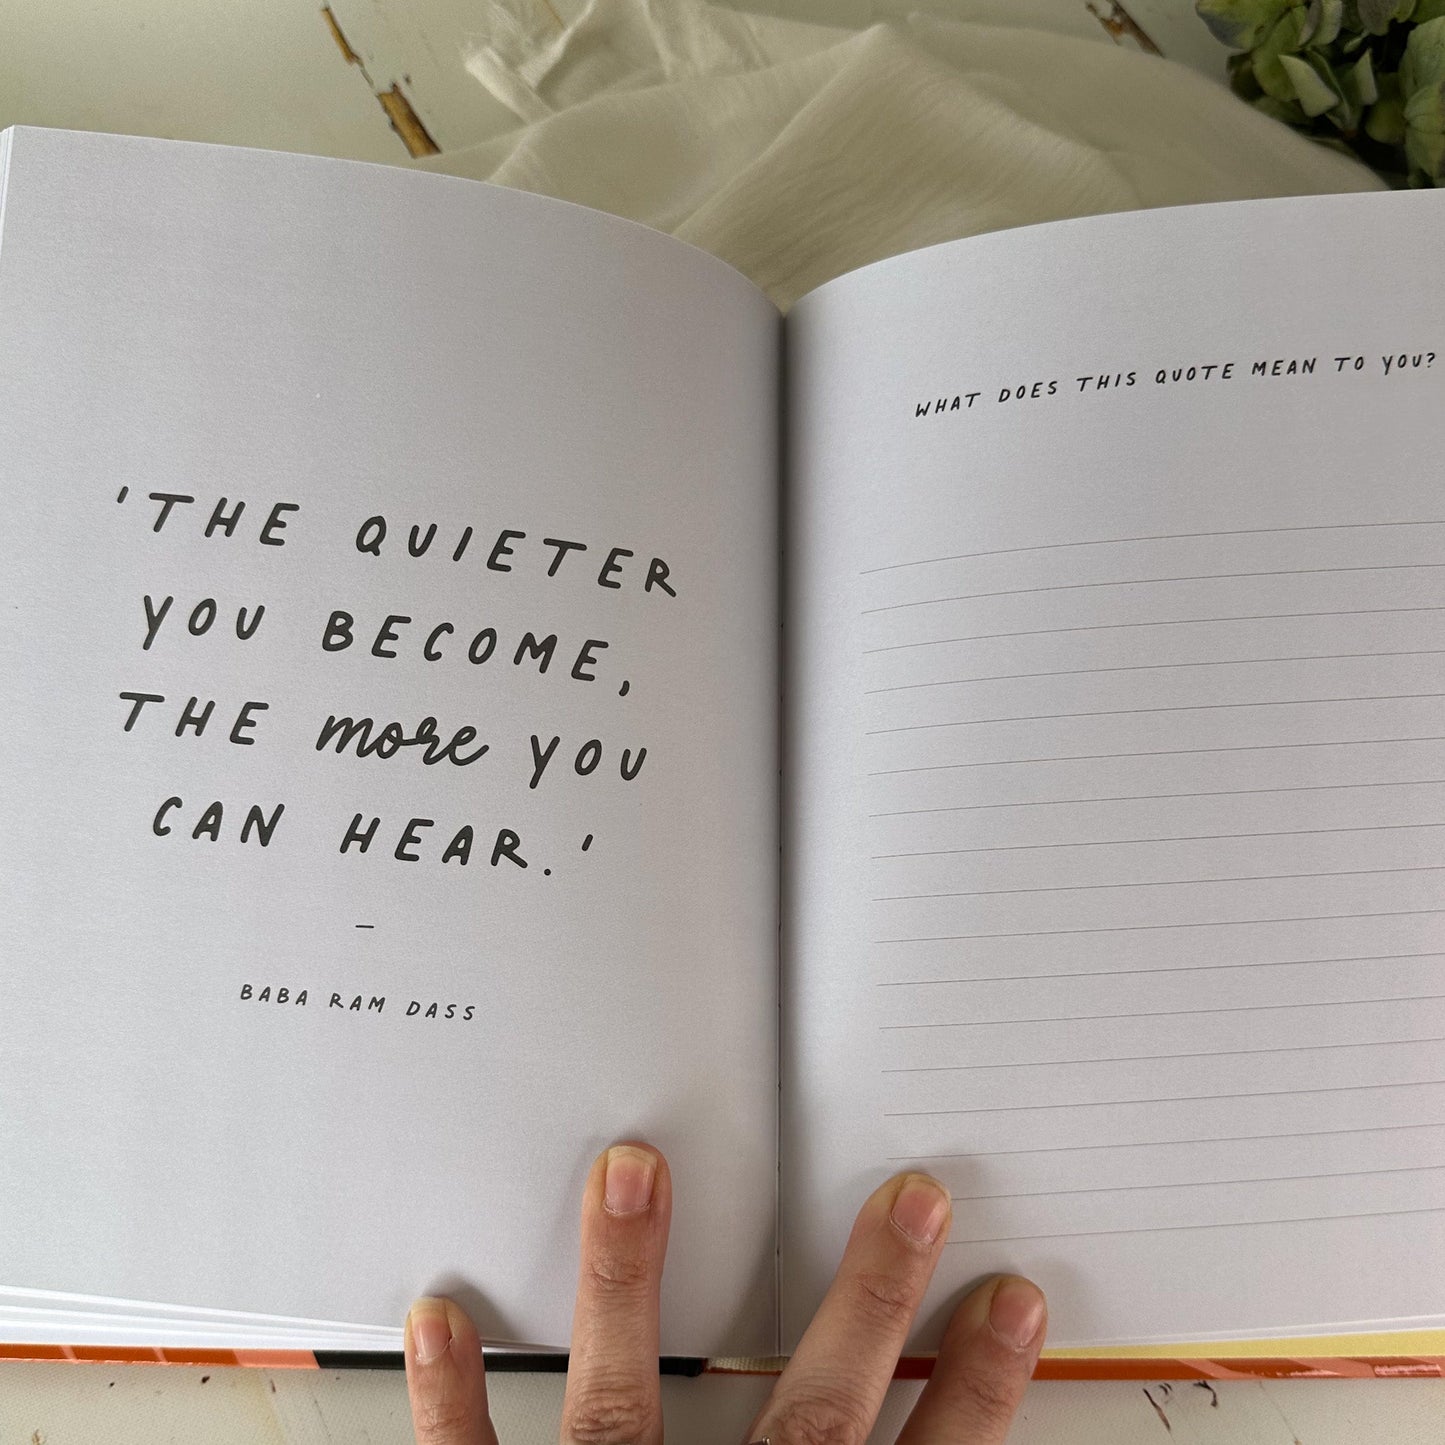 'THE QUIETER
YOU BECOME,
THE more YOU
CAN HEAR.'
–
BABA RAM DASS
WHAT DOES THIS QUOTE MEAN TO YOU?